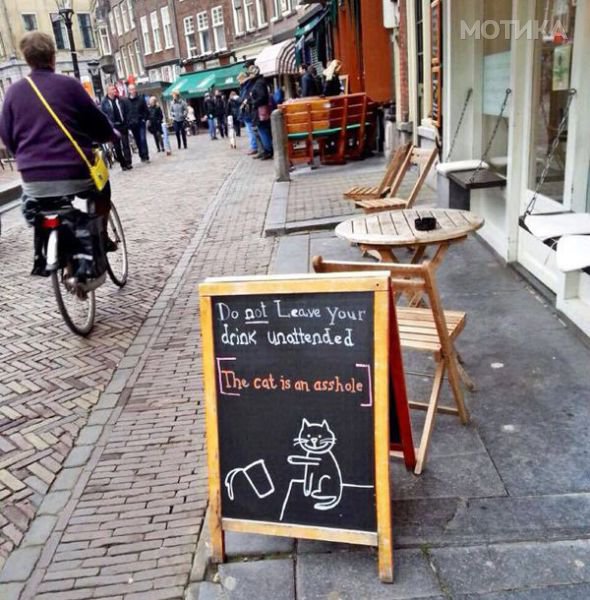 МОТИКА
Do not Leave your
drink unattended
[The cat is an asshole]